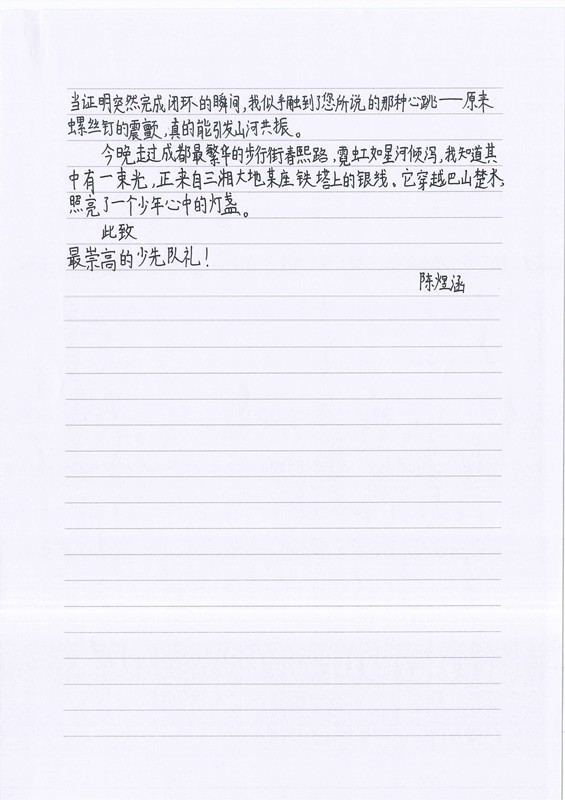 当证明突然完成闭环的瞬间,我似乎触到了您所说的那种心跳——原来
螺丝钉的震颤,真的能引发山河共振。
今晚走过成都最繁华的步行街春熙路,霓虹如星河倾泻,我知道其
中有一束光,正来自三湘大地某座铁塔上的银线。它穿越巴山楚水,
照亮了一个少年心中的灯盏。
此致
最崇高的少先队礼!
陈煜涵